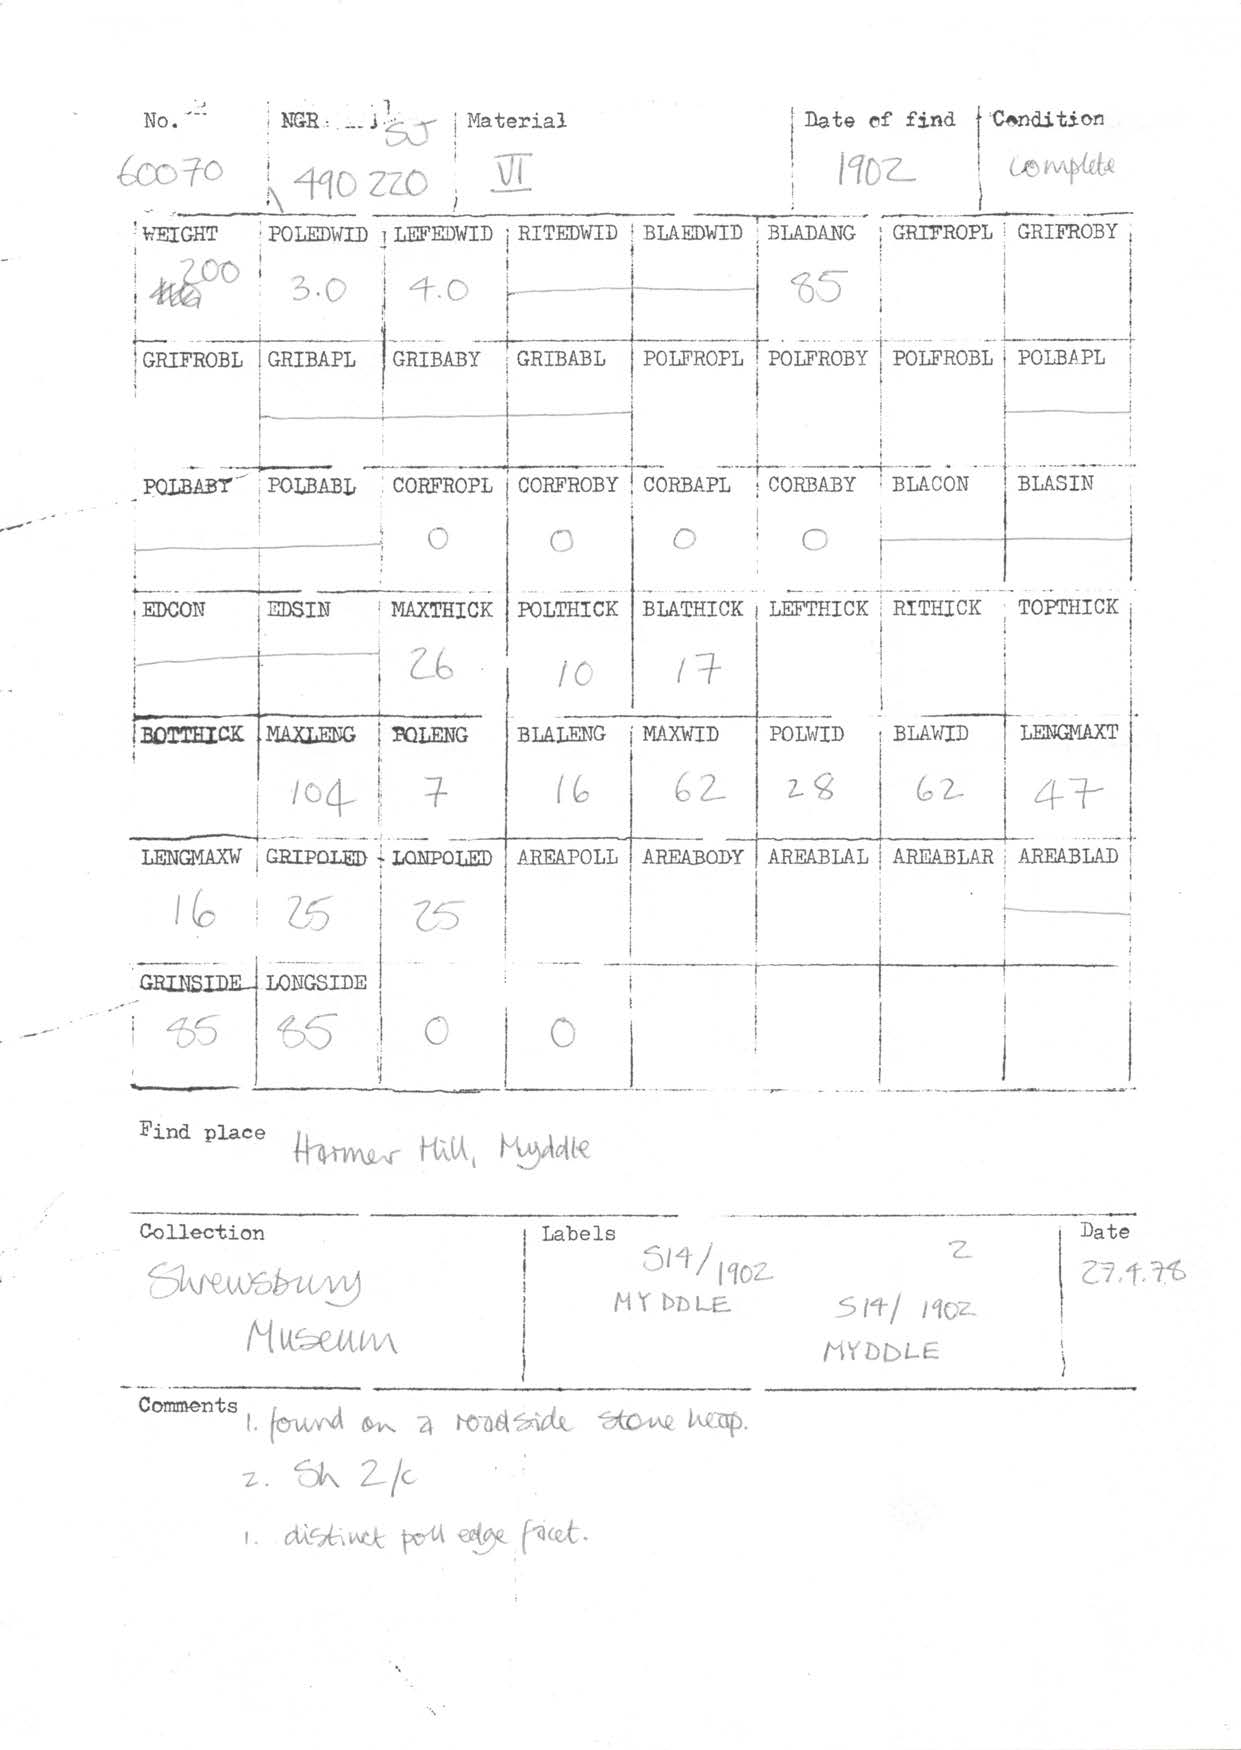 No. NGR SJ Material Date of find Condition
60070 490 220 VI 1902 complete
WEIGHT POLEDWID LEFEDWID RITEDWID BLAEDWID BLADANG GRIFROPL GRIFROBY
200 3.0 4.0 85
GRIFROBL GRIBAPL GRIBABY GRIBABL POLFROPL POLFROBY POLFROBL POLBAPL
POLBABY POLBABL CORFROPL CORFROBY CORBAPL CORBABY BLACON BLASIN
0 0 0 0
EDCON EDSIN MAXTHICK POLTHICK BLATHICK LEFTHICK RITHICK TOPTHICK
26 10 17
BOTTHICK MAXLENG POLENG BLALENG MAXWID POLWID BLAWID LENGMAXT
104 7 16 62 28 62 47
LENGMAXW GRIPOLED LONPOLED AREAPOLL AREABODY AREABLAL AREABLAR AREABLAD
16 25 25
GRINSIDE LONGSIDE
85 85 0 0
Find place Harmer Hill, Myddle
Collection Labels Date
Shrewsbury S14/1902 2 27.4.78
Museum MYDDLE S14/ 1902
MYDDLE
Comments 1. found on a roadside stone heap.
2. Sh 2/c
1. distinct poll edge facet.